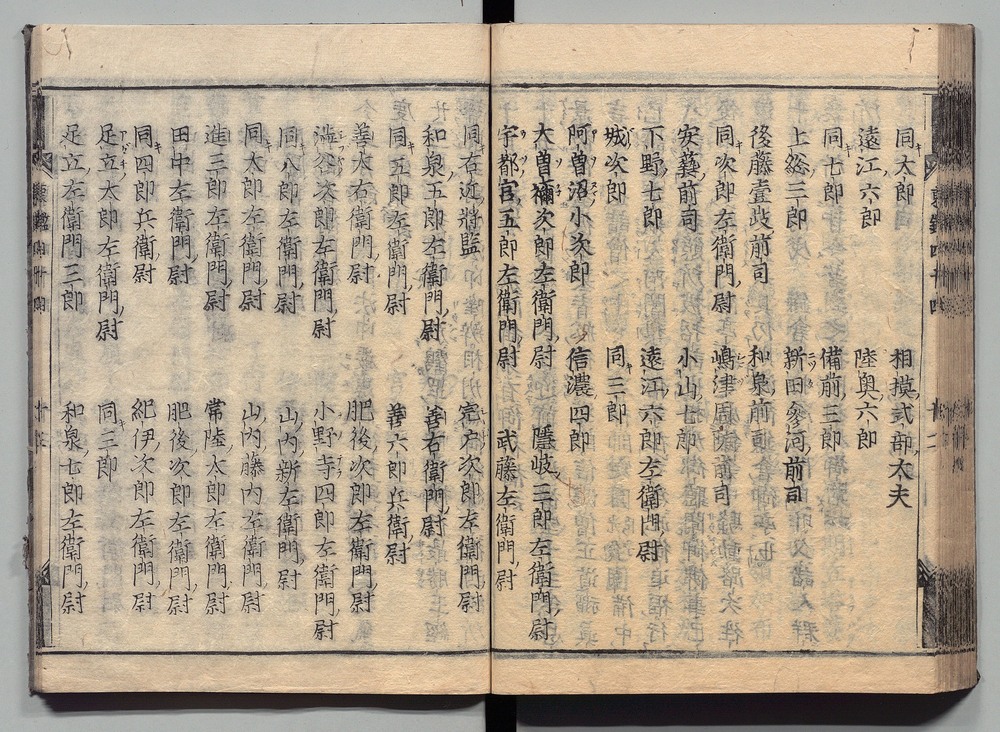 同太郎　相摸式部大夫
遠江六郎　陸奥六郎
同七郎　備前三郎
上総三郎　新田參河前司
後藤壹岐前司　和泉前司
同次郎左衛門尉　嶋津周防前司
安藝前司　小山七郎
下野七郎　遠江六郎左衛門尉
城次郎　同三郎
阿曽沼小次郎　信濃四郎
大曽禰次郎左衛門尉　隱岐三郎左衛門尉
宇都宮五郎左衛門尉　武藤左衛門尉
同右近將監　宍戸次郎左衛門尉
和泉五郎左衛門尉　善右衛門尉
同五郎左衛門尉　善六郎兵衛尉
善太右衛門尉　肥後次郎左衛門尉
澁谷次郎左衛門尉　小野寺四郎左衛門尉
同八郎左衛門尉　山内新左衛門尉
同太郎左衛門尉　山内藤内左衛門尉
進三郎左衛門尉　常陸太郎左衛門尉
田中左衛門尉　肥後次郎左衛門尉
同四郎兵衛尉　紀伊次郎左衛門尉
足立太郎左衛門尉　同三郎
足立左衛門三郎　和泉七郎左衛門尉